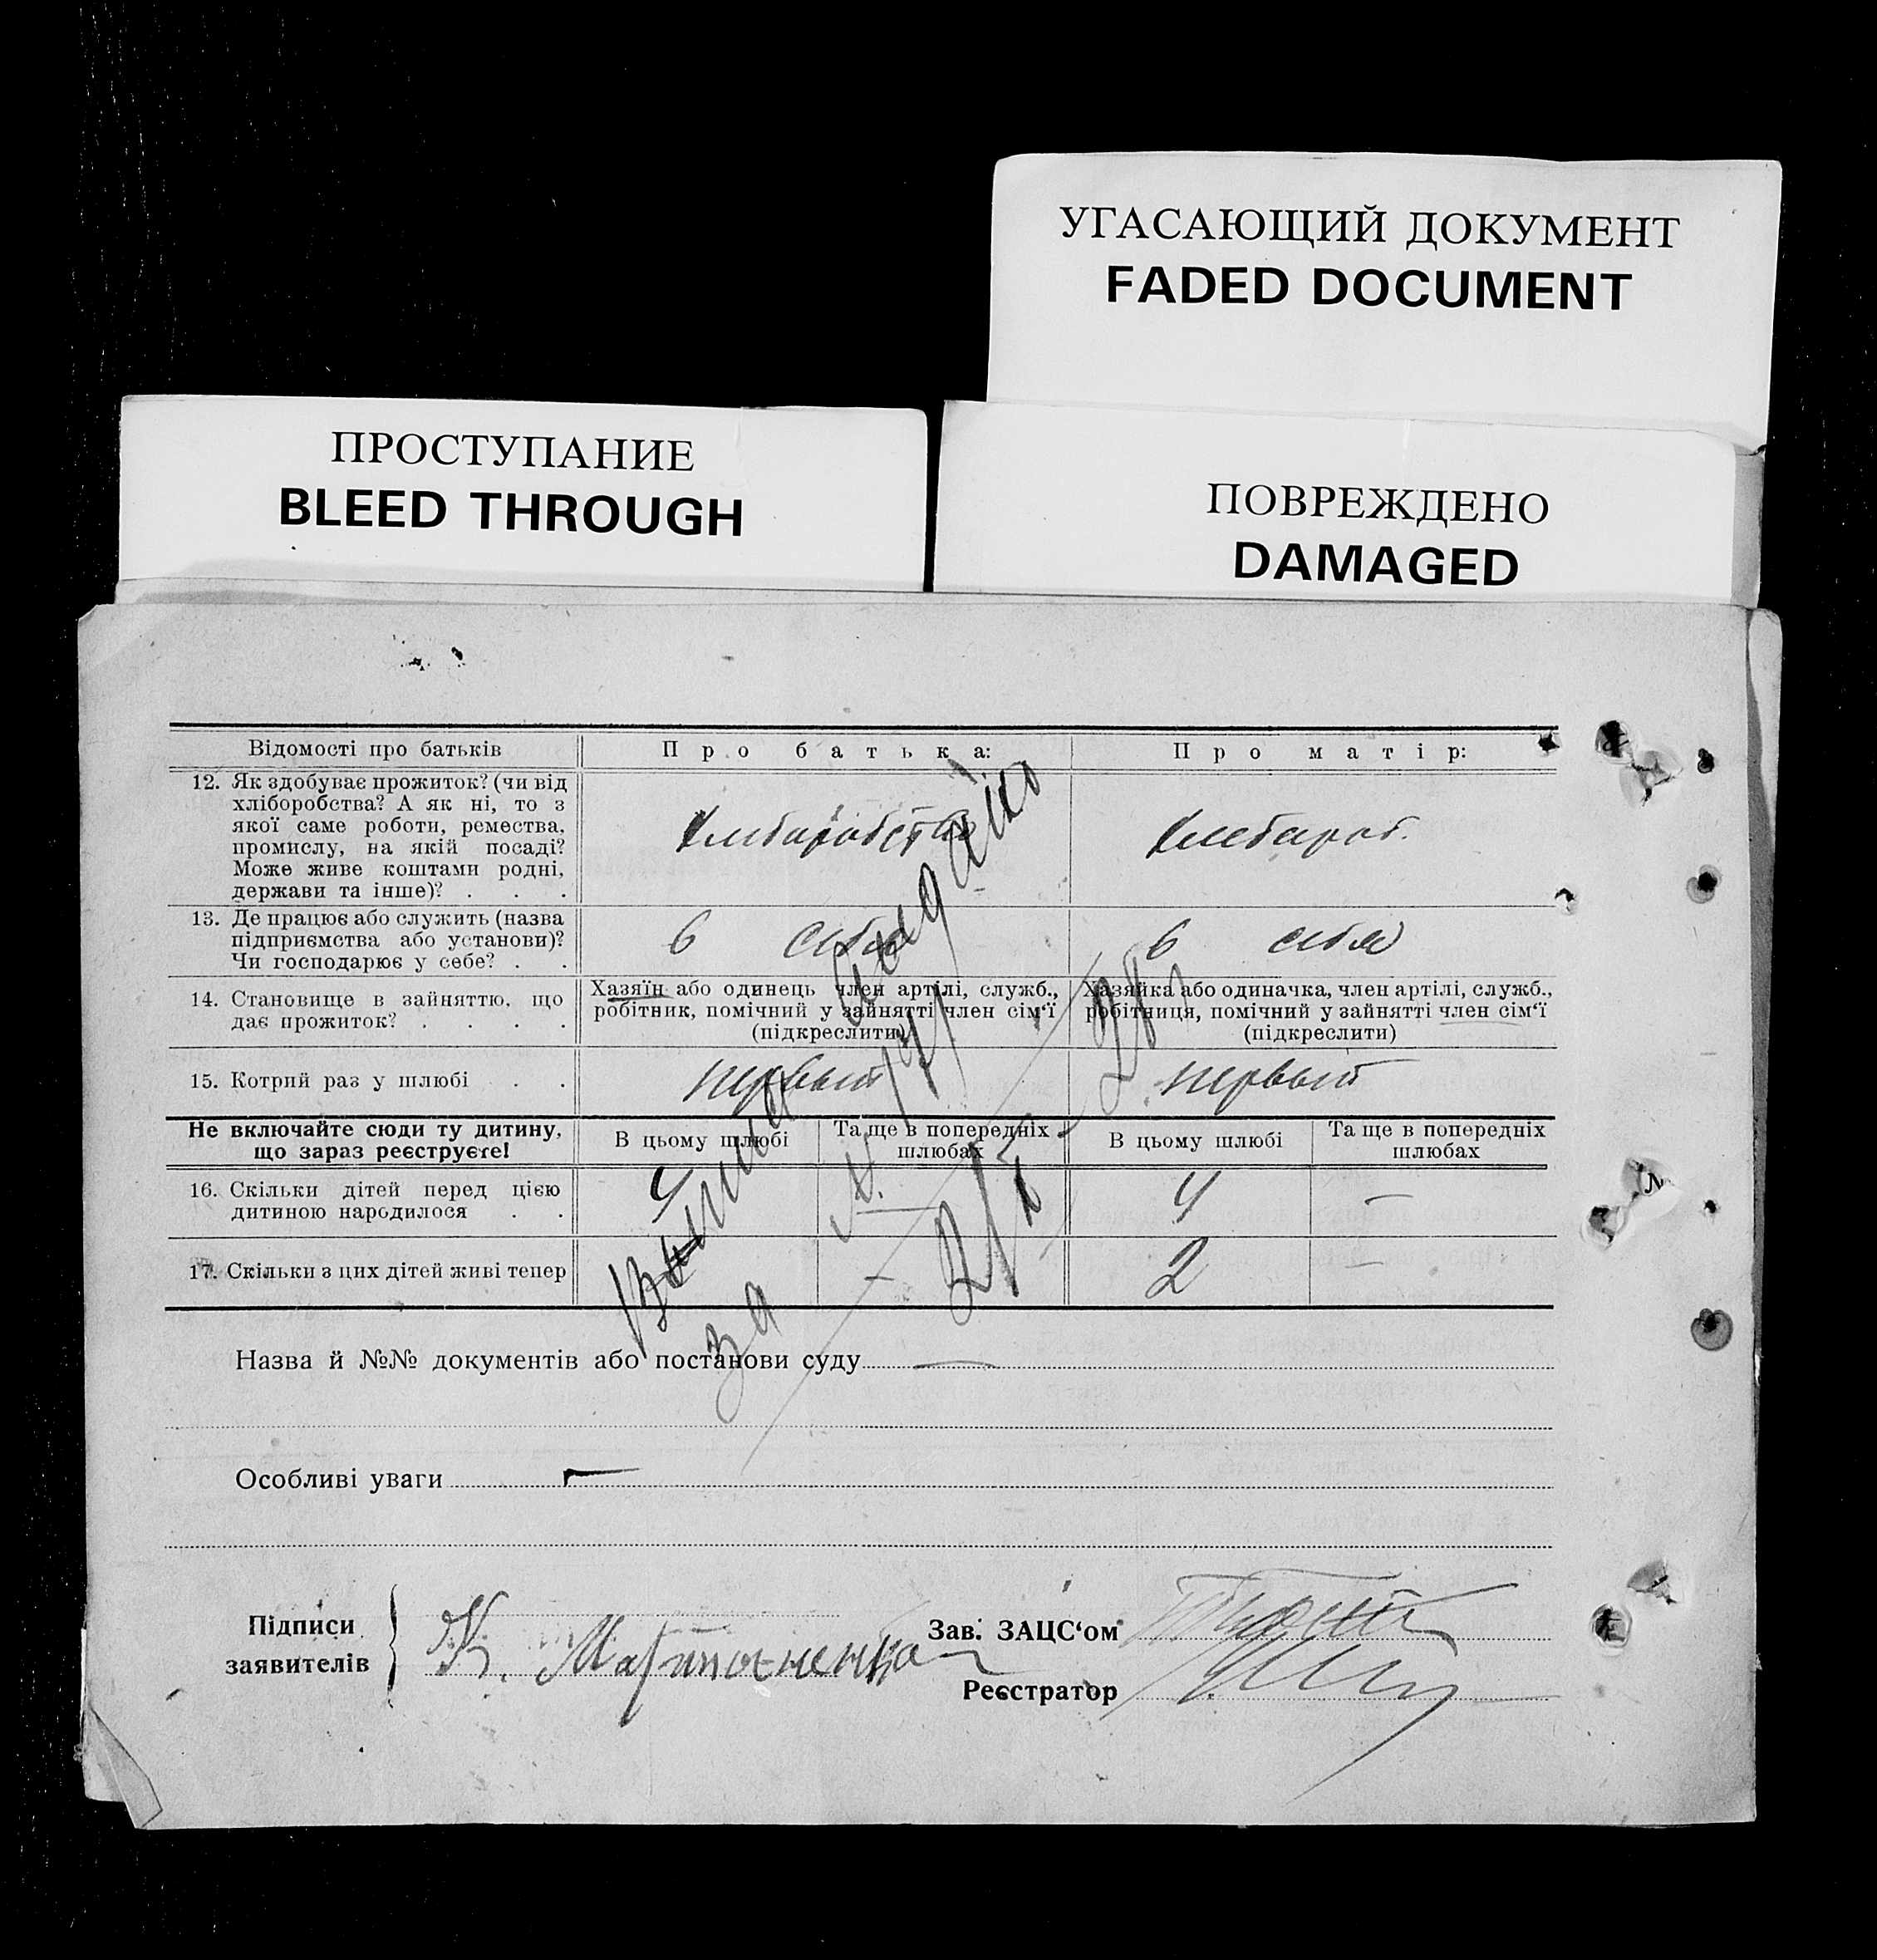 УГАСАЮЩИЙ ДОКУМЕНТ
FADED DOCUMENT
ПРОСТУПАНИЕ
BLEED THROUGH
ПОВРЕЖДЕНО
DAMAGED
Відомості про батьків
Про батька:
Про матір:
12. Як здобуває прожиток? (чи від
хліборобства? А як ні, то з
якої саме роботи, ремества,
промислу, на якій посаді?
Може живе коштами родні,
держави та інше)? . . .
13. Де працює або служить (назва
підприємства або установи)?
Чи господарює у себе? . .
в себе
в себе
14. Становище в зайняттю, що
дає прожиток? . . . .
Хазяїн або одинець член артілі, служб.,
робітник, помічний у зайнятті член сім'ї
(підкреслити)
Хазяйка або одиначка, член артілі, служб.,
робітниця, помічний у зайнятті член сім'ї
(підкреслити)
15. Котрий раз у шлюбі . .
первый
первый
Не включайте сюди ту дитину,
що зараз реєструєте!
В цьому шлюбі
Та ще в попередніх
шлюбах
В цьому шлюбі
Та ще в попередніх
шлюбах
16. Скільки дітей перед цією
дитиною народилося . .
4
4
–
17. Скільки з цих дітей живі тепер
–
2
–
за
Назва й №№ документів або постанови суду
Особливі уваги
Підписи
заявителів
К. Мартыненко
Зав. ЗАЦС'ом
Реєстратор